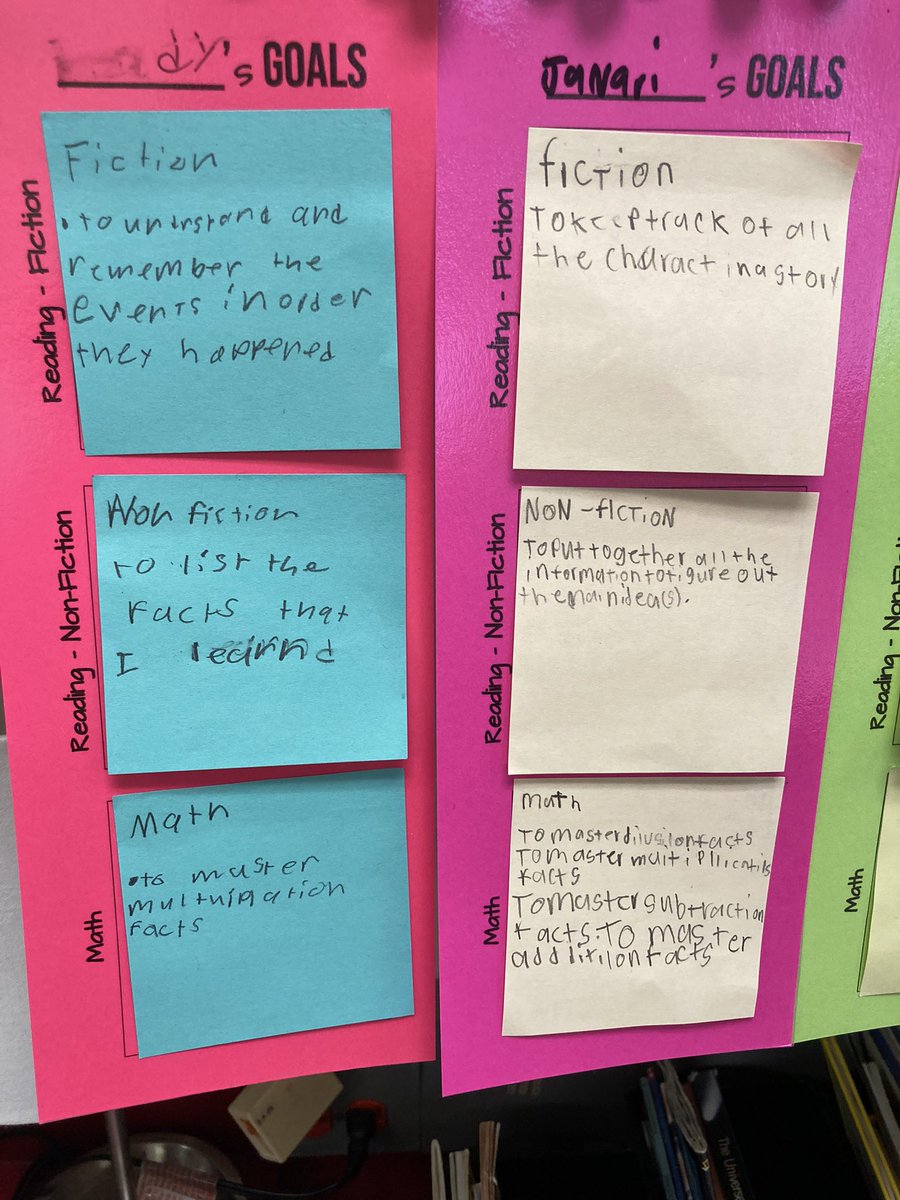 dy's GOALS
Reading - Fiction
Fiction
. to understand and
remember the
events in order
they happened
Reading - Non-Fiction
Non fiction
to list the
facts that
I learnd
Math
Math
. to master
multuipation
facts
Janari's GOALS
Reading - Fiction
fiction
To keep track of all
the charact in a story
Reading - Non-Fiction
NON-fiction
To put together all the
information to figure out
the main idea(s).
Math
math
To master division facts
To master
facts
To master subtraction
facts. To master
addditilon facts
Reading -
Math
The Univer